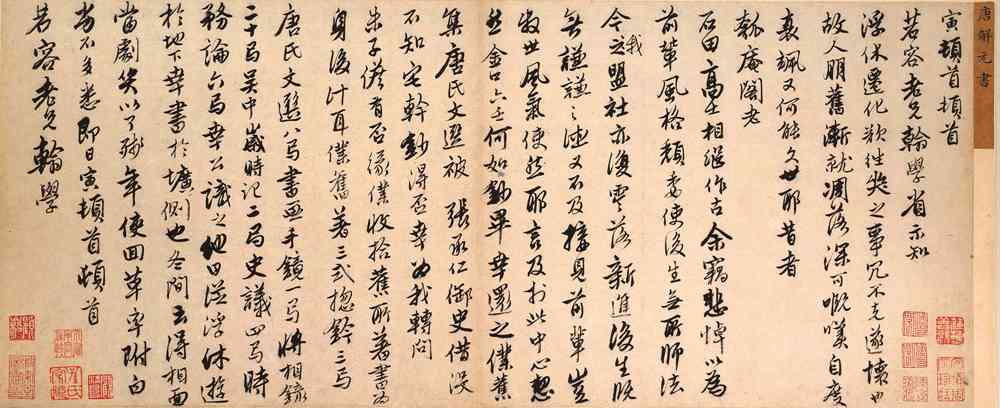 唐解元書
寅頓首頓首
若容老兄翰學省示知
浮休遷化欲往奠之事冗不克遂懷也
故人朋舊漸就凋落深可嘅嘆自度
衰颯又何能久世耶昔者
瓠庵閣老
石田高士相繼作古余竊悲悼以為
前輩風格頹委使後生無所師法
今之我盟社亦復零落新進後生既
無謙謙之德又不及接見前輩豈
衰世風氣使然耶言及於此中心惻
然金口六七何如鈔畢幸還之僕舊
集唐氏文選被張承仁御史借沒
不知宅幹鈔得否幸為我轉問
朱子儋有否緣僕收拾舊所著書為
身後計耳僕舊著三式揔鈐三局
唐氏文選八局書畫手鏡一局將相錄
二十局吳中歲時記二局史議四局時
務論六局幸公識之他日從浮休遊
於地下幸書於壙側也冬間云得相面
當劇笑以了殘年使回草率附白
尚不多悉即日寅頓首頓首
若容老兄翰學